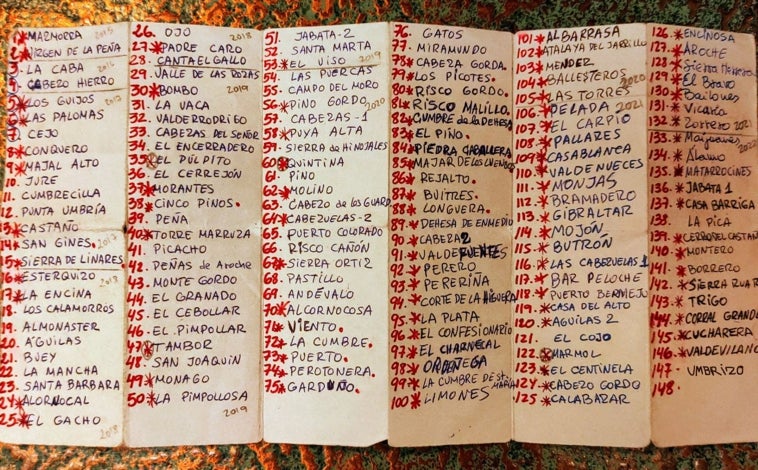 1* MAZMORRA 2015
2* VIRGEN DE LA PEÑA
3. LA CABA 2016
4* CABEZO HIERRO
5* LOS GUIJOS 2017
6* LAS PALOMAS
7. CEJO
8. CONQUERO
9* MAJAL ALTO
10. JURE
11. CUMBRECILLA
12. PUNTA UMBRÍA
13* CASTAÑO
14* SAN GINES. 2017
15* SIERRA DE LINARES
16* ESTERQUIZO 2018
17* LA ENCINA
18. LOS CALAMORROS
19. ALMONASTER
20. AGUILAS
21. BUEY
22. LA MANCHA
23. SANTA BARBARA
24* ALORNOCAL
25* EL GACHO 2018
26. OJO 2018
27* PADRE CARO
28. CANTA EL GALLO
29. VALLE DE LAS ROZAS
30* BOMBO 2019
31. LA VACA
32. VALDERRODRIGO
33. CABEZAS DEL SEÑOR
34. EL ENCERRADERO
35* EL PÚLPITO
36. EL CERREJÓN
37* MORANTES
38* CINCO PINOS.
39. PEÑA
40* TORRE MARRUZA
41. PICACHO
42. PEÑAS de Aroche
43. MONTE GORDO
44. EL GRANADO
45. EL CEBOLLAR
46. EL PIMPOLLAR
47* TAMBOR
48. SAN JOAQUÍN
49* MONAGO
50* LA PIMPOLLOSA 2019
51. JABATA-2
52. SANTA MARTA
53* EL VISO 2019
54. LAS PUERCAS
55. CAMPO DEL MORO
56* PINO GORDO 2020
57. CABEZAS-1
58* PUYA ALTA
59. SIERRA de HINOJALES
60* QUINTINA
61. PINO
62* MOLINO
63. CABEZO de LOS GUARD
64* CABEZUELAS-2
65. PUERTO COLORADO
66. RISCO CAÑÓN
67* SIERRA ORTIZ
68. PASTILLO
69. ANDÉVALO
70* ALGORNOCOSA
71* VIENTO.
72* LA CUMBRE.
73* PUERTO.
74* PEROTONERA.
75* GARDUÑO.
76. GATOS
77. MIRAMUNDO
78* CABEZA GORDA.
79* LOS PICOTES.
80* RISCO GORDO.
81* RISCO MALILLO.
82* CUMBRE de la DEHESA
83* EL PINO.
84* PIEDRA CABALLERA
85* MAJAR DE LOS
86* REJALTO.
87* BUITRES.
88* LONGUERA.
89* DEHESA DE ENMEDIO
90* CABEZA 2
91* VALDEFUENTES
92* PERERO
93* PERERIÑA
94* CORTE DE LA HIGUERA
95* LA PLATA
96* EL CONFESIONARIO
97* EL CHARNECAL
98* ORDENEGA
99* LA CUMBRE DE Sta MARÍA
100* LIMONES
101* ALBARRASA
102* ATALAYA DEL JARRILLO
103* MENDER
104* BALLESTEROS 2020
105* LAS TORRES
106* PELADA 2021
107* EL CARPIO
108* PALLARES
109* CASABLANCA
110* VALDENUECES
111* MONJAS
112* BRAMADERO
113* GIBRALTAR
114* MOJÓN
115* BUTRÓN
116* LAS CABEZUELAS 1
117* BAR PELOCHE
118* PUERTO BERMEJO
119* CASA DEL ALTO
120* AGUILAS 2
121. EL COJO
122* MARMOL
123* EL CENTINELA
124* CABEZO GORDO
125* CALABAZAR
126* ENCINOSA
127* AROCHE
128* Sierra Herrera
129* El Bravo
130* Bailones
131* Vicaria
132* Zorrero 2021
133*
134* Álamo
135* MATARROCINES
136* JABATA 1
137* CASA BARRIGA
138. LA PICA
139* CERRO DEL CASTAÑO
140* MONTERO
141* BORRERO
142* SIERRA RUA
143* TRIGO
144* CORRAL GRANDE
145* CUCHARERA
146* VALDEVILANO
147 UMBRIZO
148.